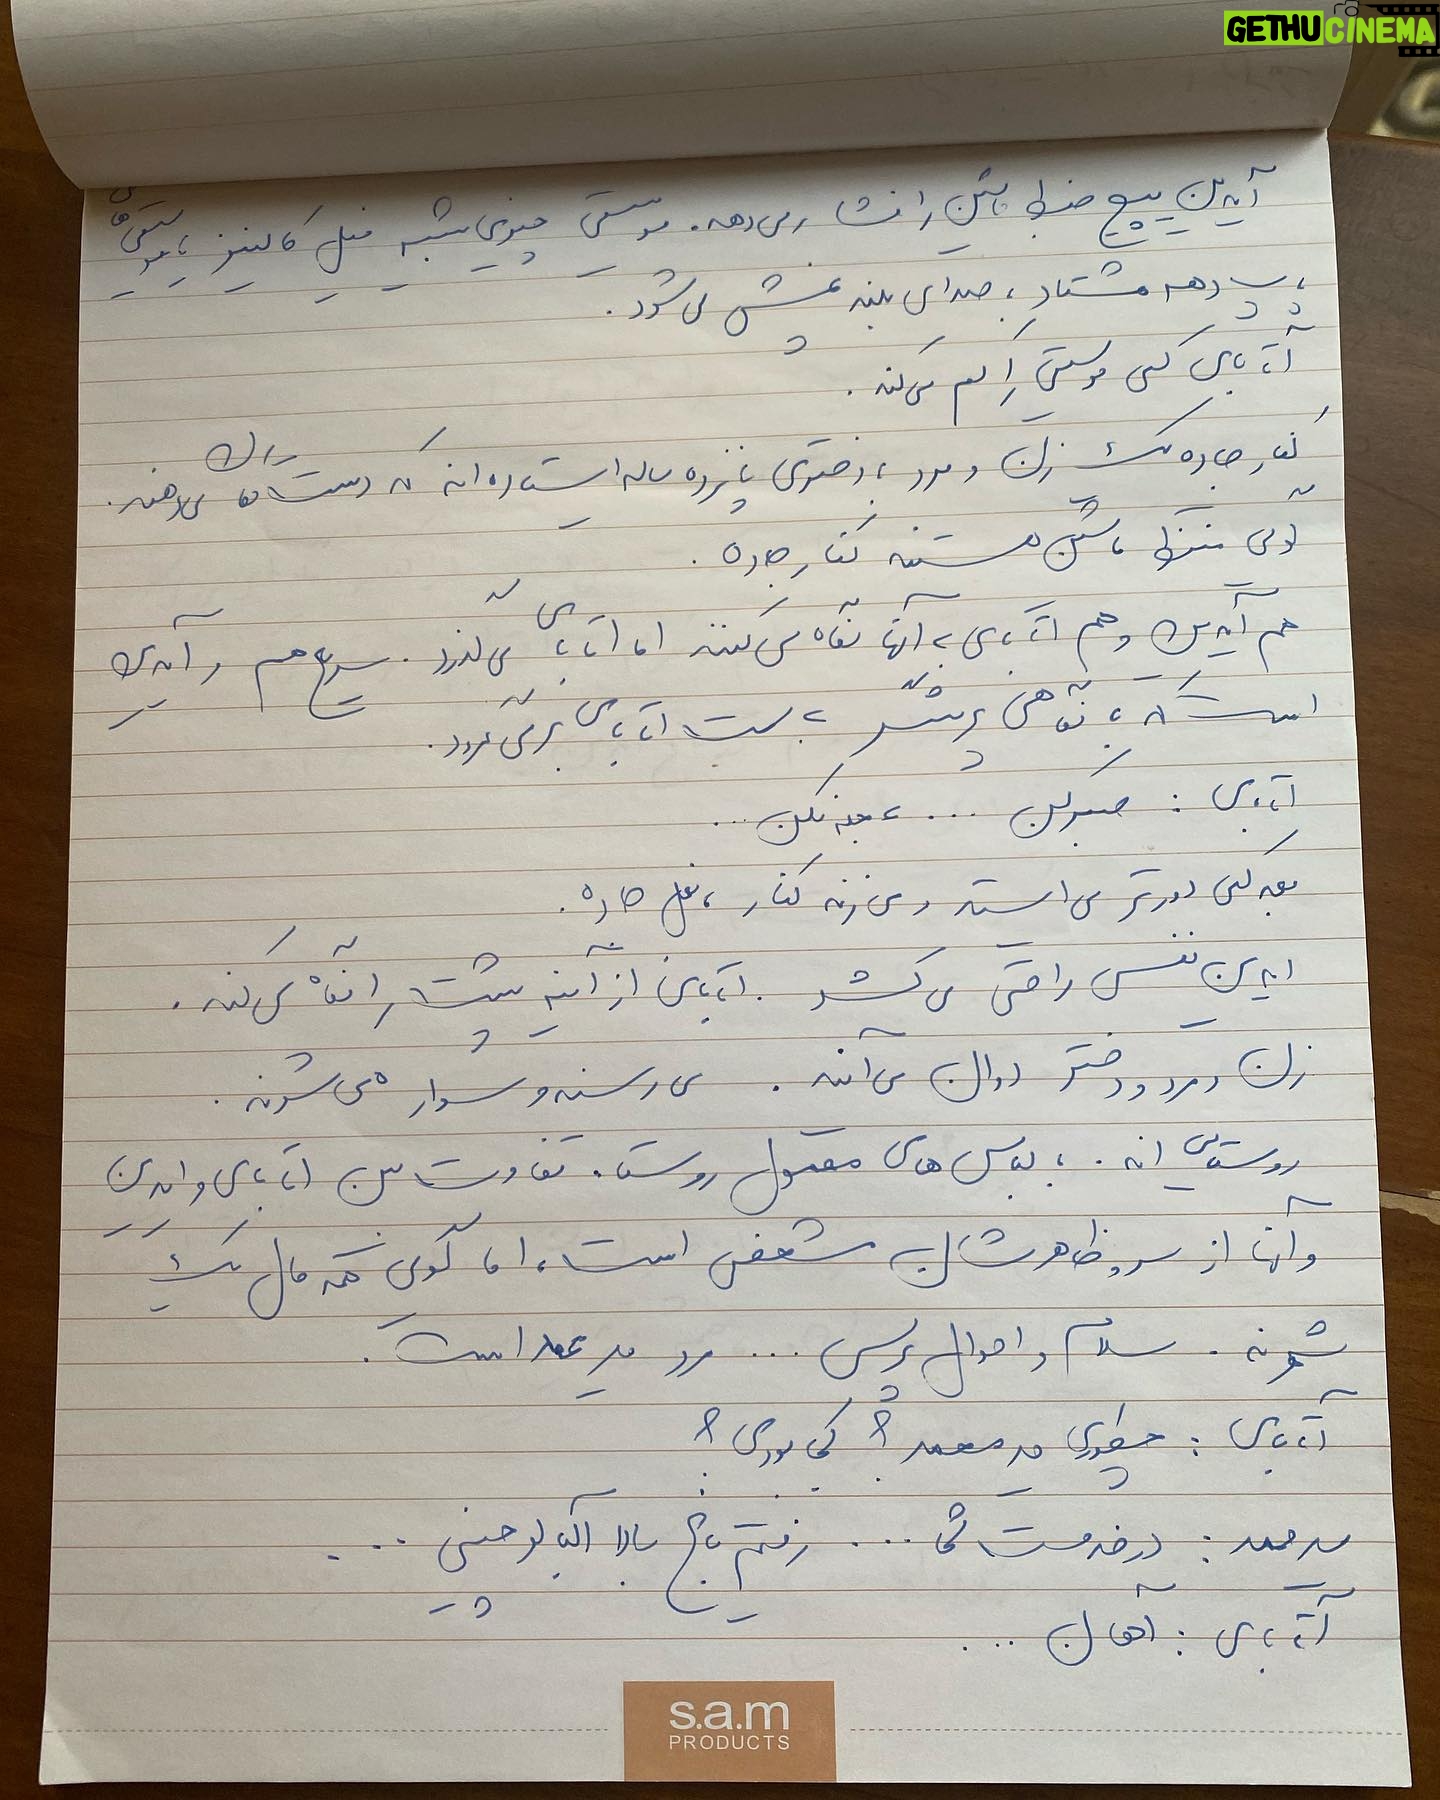 GETHUCINEMA
آیدین پیچ ضبط ماشین را فشار می‌دهد. موسیقی چیزی شبیه فیلم کالیفرنیا، موسیقی‌های
پاپ دهه هشتاد، صدای بلند پخش می‌شود.
آتابای کمی موسیقی را کم می‌کند.
کنار جاده یک زن و مرد با دختری پانزده ساله ایستاده‌اند که دست‌ها را تکان می‌دهند.
گویی منتظر ماشین هستند کنار جاده.
هم آیدین و هم آتابای به آنها نگاه می‌کنند اما آتابای می‌گذرد. سریع هم و آیدین
است که با نگاهی پرسشگر به سمت آتابای برمی‌گردد.
آتابای: صبر کن ... عجله نکن ...
بعد کمی دورتر می‌ایستد و می‌زند کنار بغل جاده.
آیدین نفس راحتی می‌کشد. آتابای از آینه پشت را نگاه می‌کند.
زن و مرد و دختر دوان می‌آیند. می‌رسند و سوار می‌شوند.
روستایی‌اند. با لباس‌های معمول روستا. تفاوت بین آتابای و آیدین
و آنها از سر و ظاهرشان مشخص است، اما گویی همه مال یک
... سلام و احوال پرسی ... مرد میرصمد است.
آتابای: چطوری میرصمد؟ کجا بودی؟
میرصمد: در خدمت شما ... رفتیم باغ بالا آلبالو چینی ...
آتابای: آهان ...
s.a.m
PRODUCTS